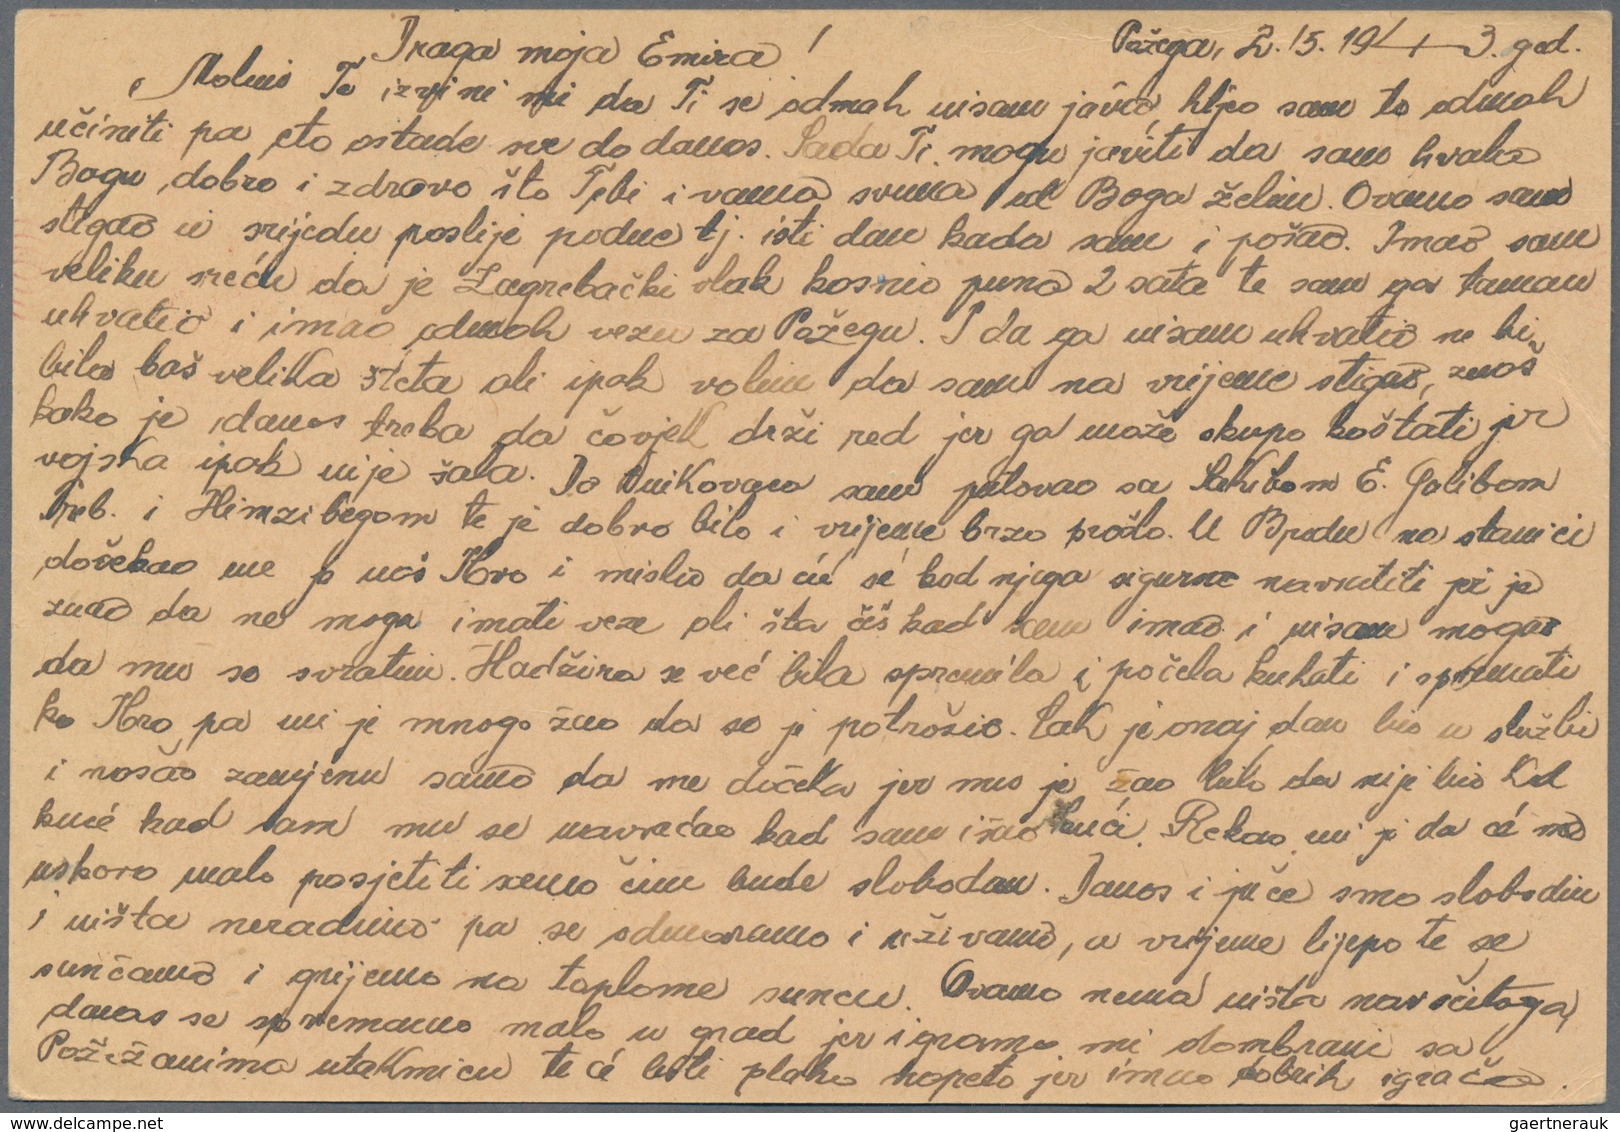 Požega, 2./5. 1943. god.
Draga moja Emira!
Molim Te izvini mi da Ti se odmah nisam javio, htjeo sam to odmah
učiniti pa eto ostade sve do danas. Sada Ti mogu javiti da sam hvala
Bogu, dobro i zdravo što Tebi i vama svima od Boga želim. Ovamo sam
stigao u srijedu poslije podne tj. isti dan kada sam i pošao. Imao sam
veliku sreću da je Zagrebački vlak kasnio puna 2 sata te sam ga taman
uhvatio i imao odmah vezu za Požegu. I da ga nisam uhvatio ne bi
bila baš velika šteta ali ipak volim da sam na vrijeme stigao, znaš
kako je danas treba da čovjek drži red jer ga može skupo koštati jer
vojska ipak nije šala. Do sam putovao sa E. Galibom
i Himzibegom te je dobro bilo i vrijeme brzo prošlo. U Brodu na stanici
dočekao me je naš Ibro i mislio da ću se kod njega sigurno navratiti jer je
znao da ne mogu imati veze ali šta ćeš kad sam imao i nisam mogao
da mu se svratim. Hadžira se već bila spremila i počela kuhati i spremati
ko Ibro pa mi je mnogo žao da se je potrošio. Čak je onaj dan bio u službi
i našao zamjenu samo da me dočeka jer mu je žao bilo da nije bio kod
kuće kad sam mu se navraćao kad sam išao kući. Rekao mi je da će nas
uskoro malo posjetiti samo čim bude slobodan. Danas i juče smo slobodni
i ništa neradimo pa se odmaramo i uživamo, a vrijeme lijepo te se
sunčamo i grijemo na toplome suncu. Ovamo nema ništa naročitoga,
danas se spremamo malo u grad jer igramo mi dombrani sa
Požežanima utakmicu te će biti plaho napeto jer imao dobrih igrača.
gaertnerauk